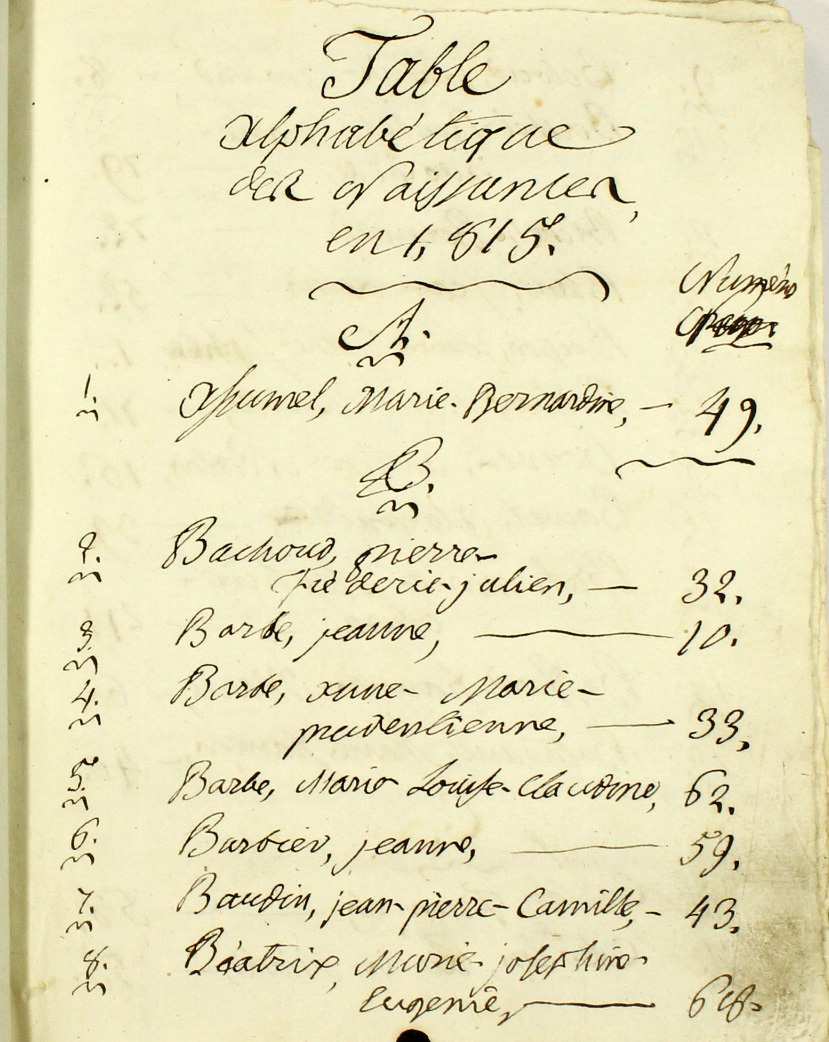 Table
alphabétique
des Naissances,
en 1,815.
Numéro
A.
1. Marie-Bernardine, — 49.
B.
2. Bachoud, pierre-
fréderic-julien, — 32.
3. Barbe, jeanne, — 10.
4. Barbe, anne-Marie-
prudentienne, — 33.
5. Barbe, Marie-Louise-Claudine, 62.
6. Barbier, jeanne, — 59.
7. Baudin, jean-pierre-Camille, — 43.
8. Béatrix, Marie-josephine-
Eugenie, — 68.